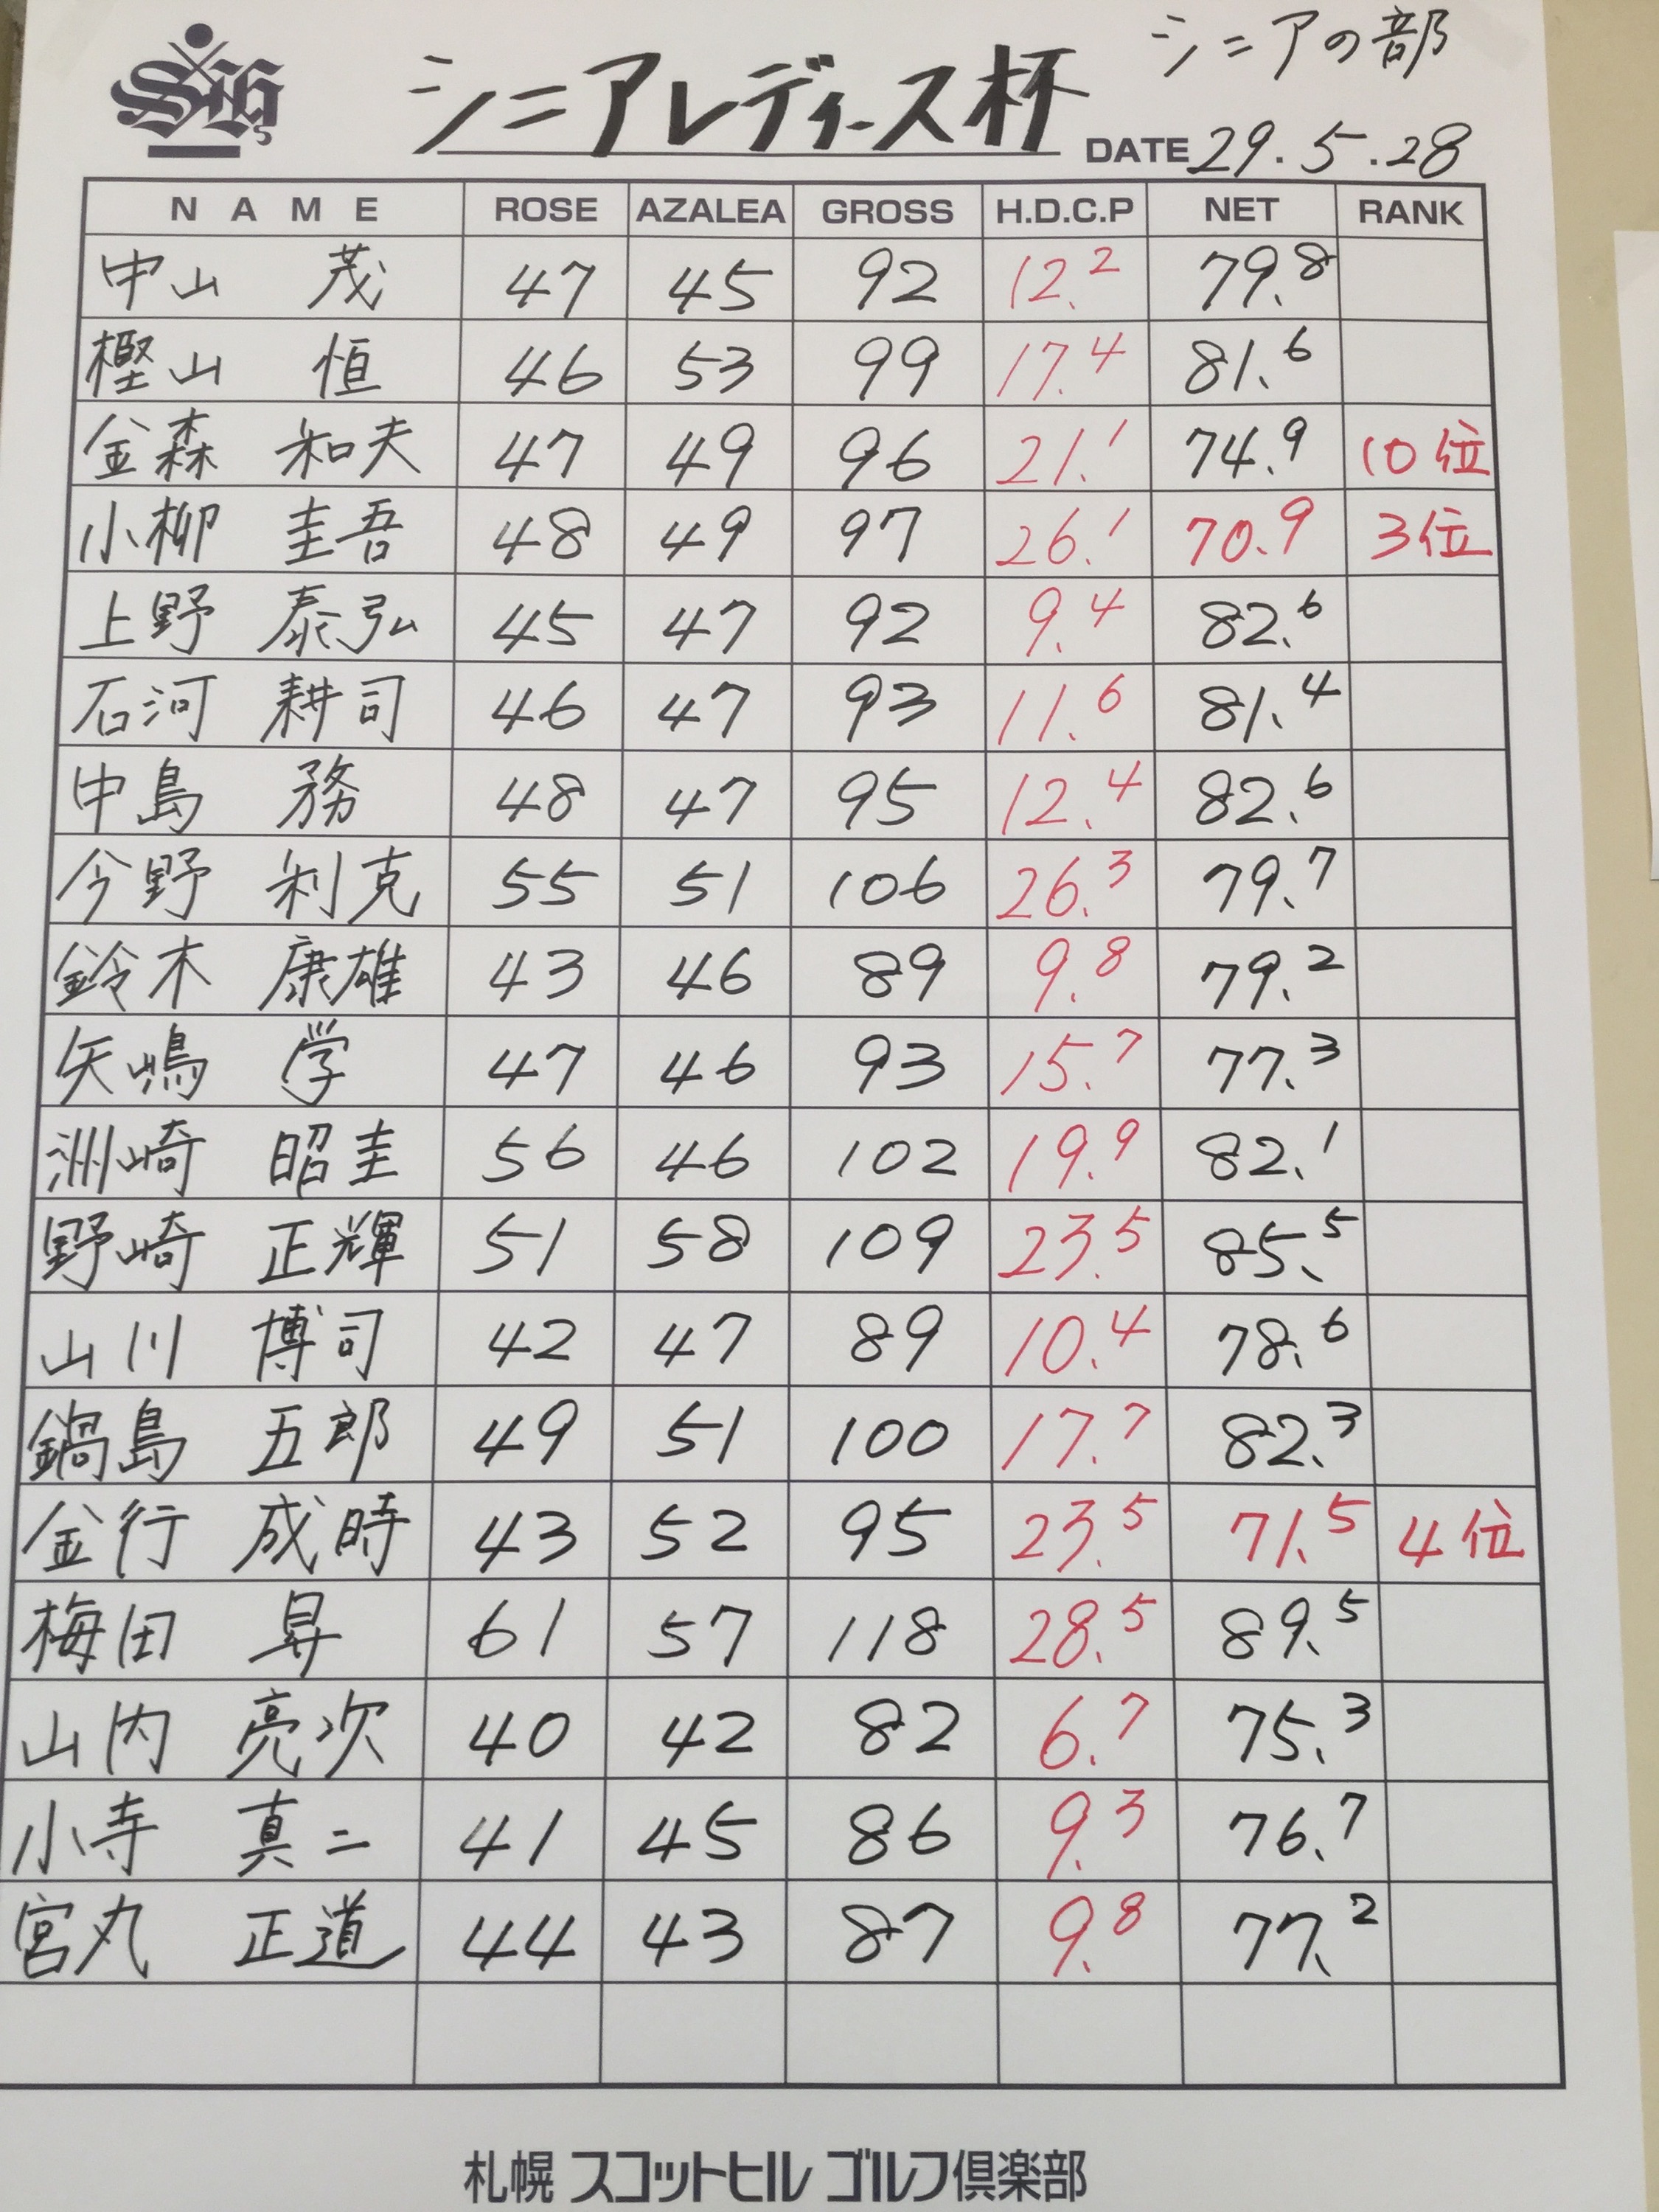 シニアの部
シニアレディース杯
DATE 29.5.28
NAME ROSE AZALEA GROSS H.D.C.P NET RANK
中山 茂 47 45 92 12.2 79.8
樫山 恒 46 53 99 17.4 81.6
金森 和夫 47 49 96 21.1 74.9 10位
小柳 圭吾 48 49 97 26.1 70.9 3位
上野 泰弘 45 47 92 9.4 82.6
石河 耕司 46 47 93 11.6 81.4
中島 務 48 47 95 12.4 82.6
今野 利克 55 51 106 26.3 79.7
鈴木 康雄 43 46 89 9.8 79.2
矢嶋 学 47 46 93 15.7 77.3
洲崎 昭圭 56 46 102 19.9 82.1
野崎 正輝 51 58 109 23.5 85.5
山川 博司 42 47 89 10.4 78.6
鍋島 五郎 49 51 100 17.7 82.3
金行 成時 43 52 95 23.5 71.5 4位
梅田 昇 61 57 118 28.5 89.5
山内 亮次 40 42 82 6.7 75.3
小寺 真二 41 45 86 9.3 76.7
宮丸 正道 44 43 87 9.8 77.2
札幌 スコットヒル ゴルフ倶楽部